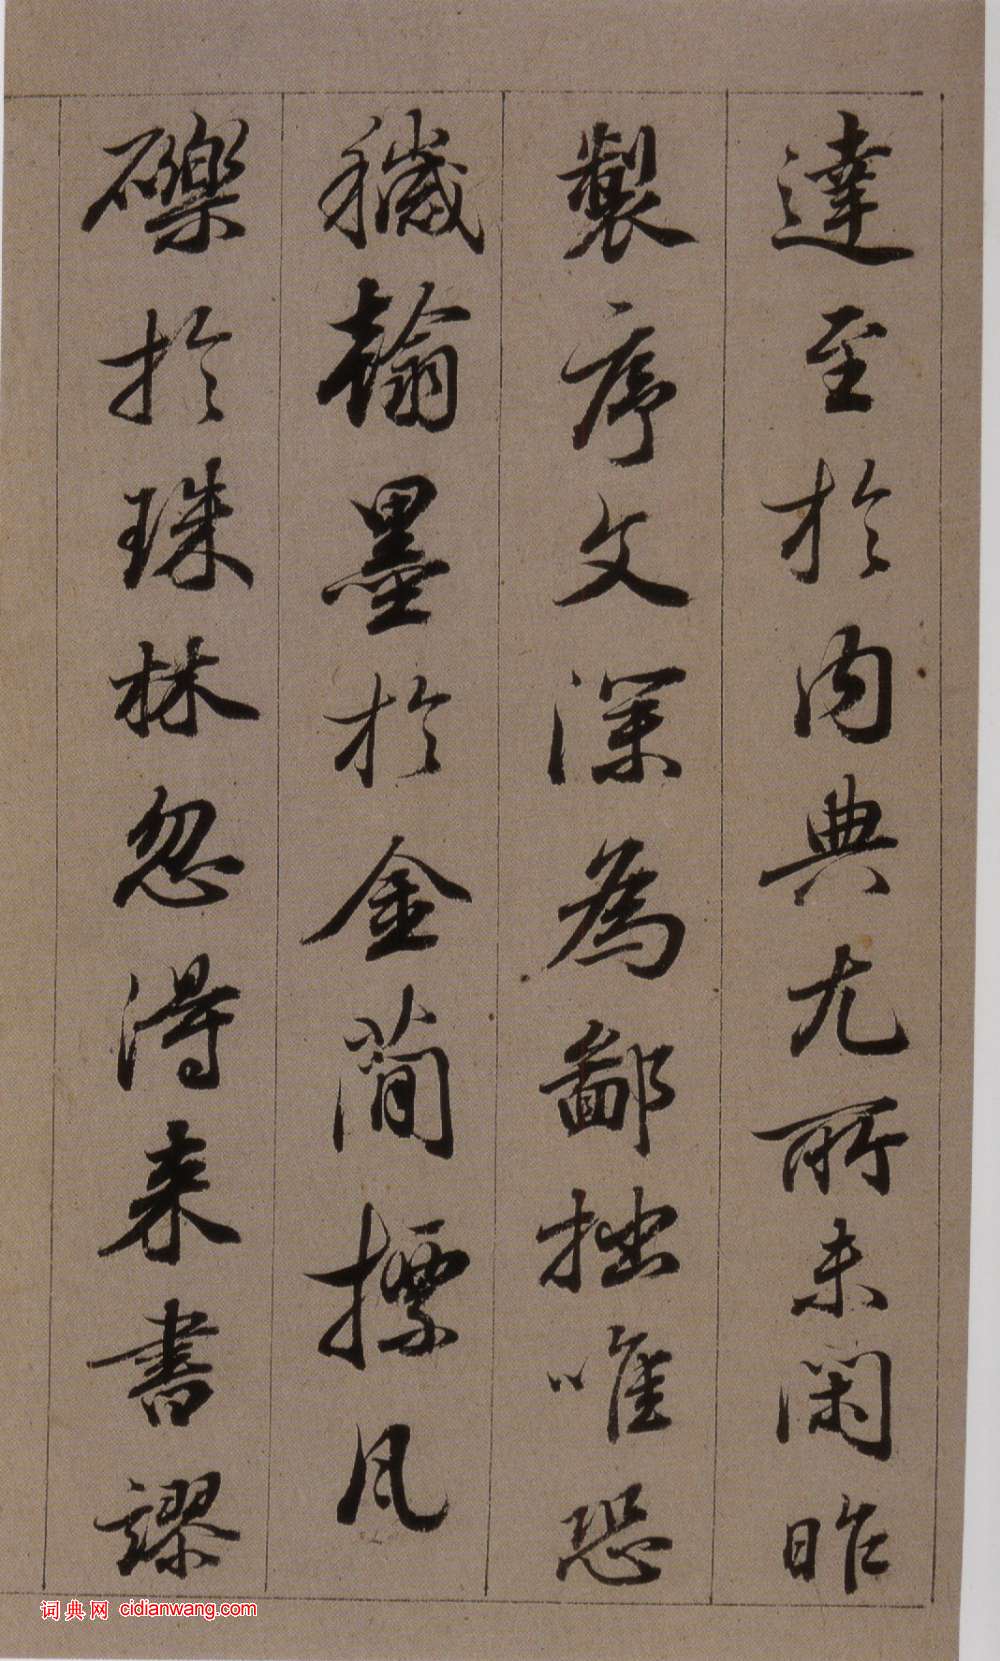 達至於内典尤所未閑昨
製序文深為鄙拙唯恐
穢翰墨於金簡摽瓦
礫於珠林忽得来書謬
词典网 cidianwang.com